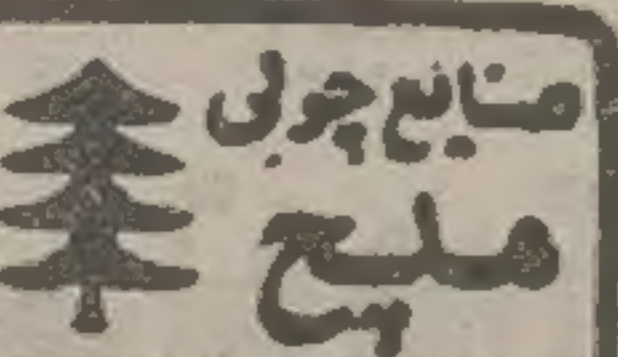 صنایع چوبی
ملیح